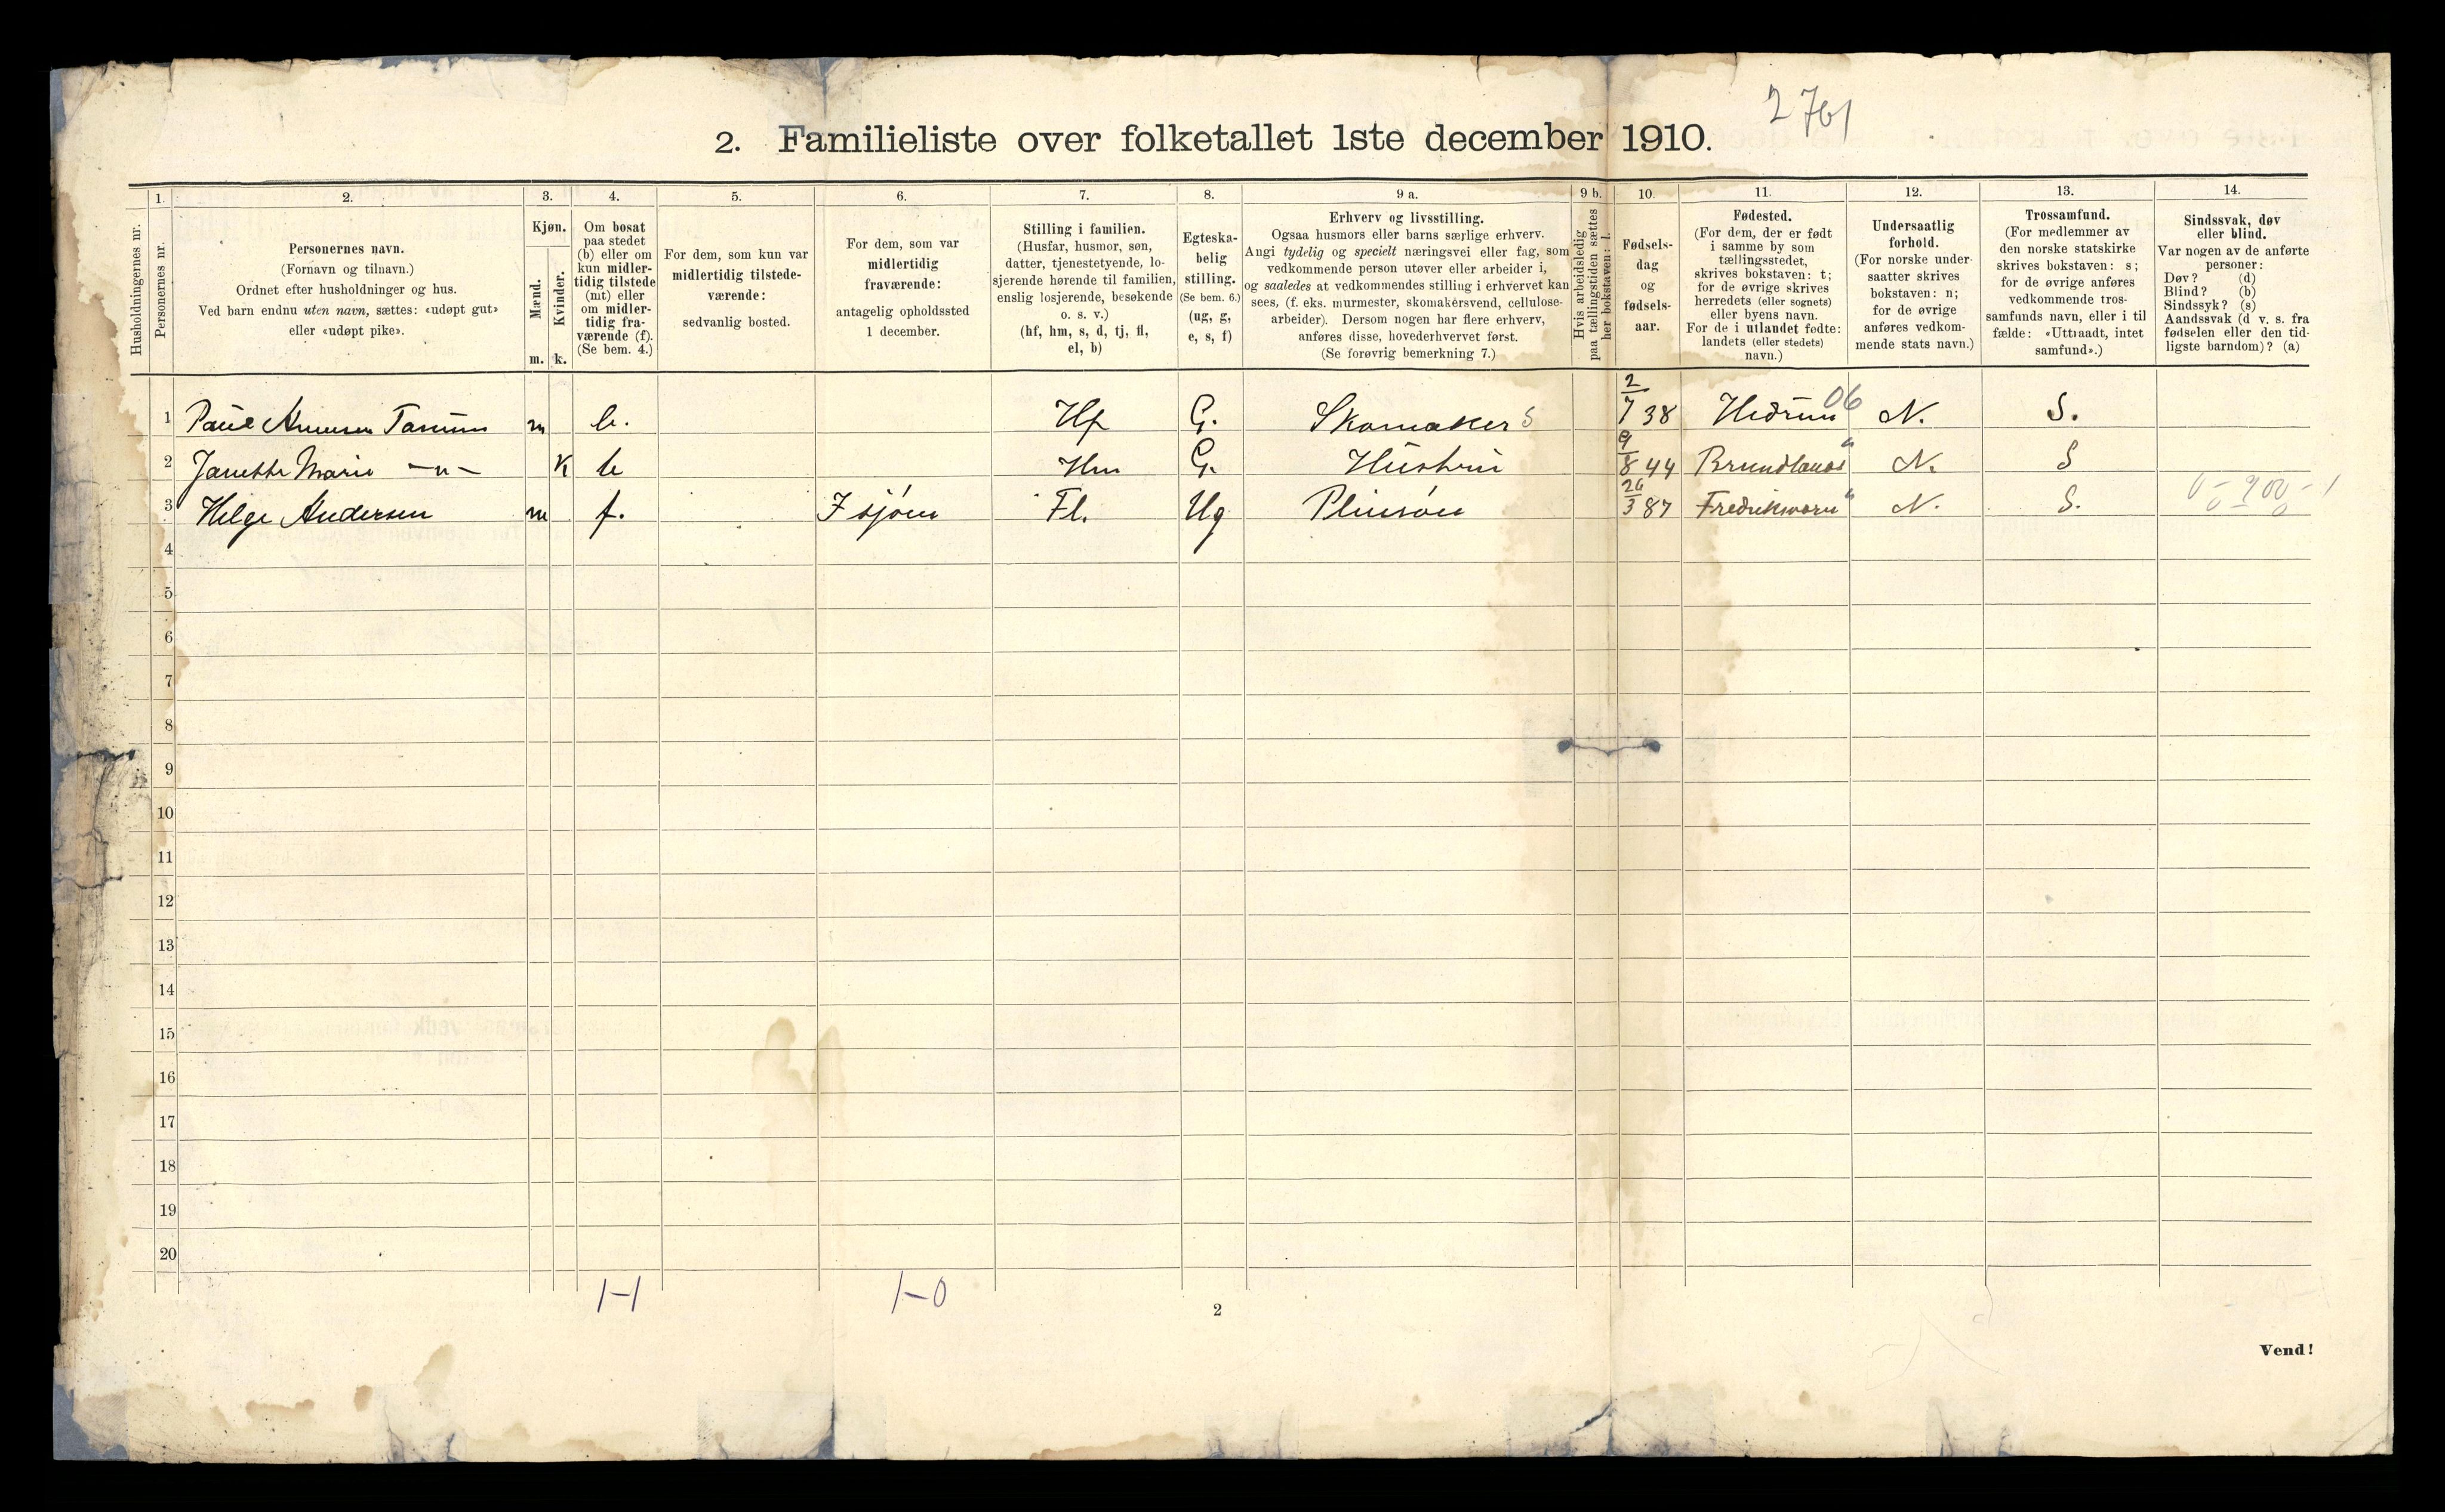 2761
2. Familieliste over folketallet 1ste december 1910.
1. 2. 3. 4. 5. 6. 7. 8. 9 a. 9 b. 10. 11. 12. 13. 14.
Husholdningernes nr.
Personernes nr.
Personernes navn.
(Fornavn og tilnavn.)
Ordnet efter husholdninger og hus.
Ved barn endnu uten navn, sættes: «udøpt gut»
eller «udøpt pike».
Kjøn.
Mænd.
m.
Kvinder.
k.
Om bosat
paa stedet
(b) eller om
kun midler-
tidig tilstede
(mt) eller
om midler-
tidig fra-
værende (f).
(Se bem. 4.)
For dem, som kun var
midlertidig tilstede-
værende:
sedvanlig bosted.
For dem, som var
midlertidig
fraværende:
antagelig opholdssted
1 december.
Stilling i familien.
(Husfar, husmor, søn,
datter, tjenestetyende, lo-
sjerende hørende til familien,
enslig losjerende, besøkende
o. s. v.)
(hf, hm, s, d, tj, fl,
el, b)
Egteska-
belig
stilling.
(Se bem. 6.)
(ug, g,
e, s, f)
Erhverv og livsstilling.
Ogsaa husmors eller barns særlige erhverv.
Angi tydelig og specielt næringsvei eller fag, som
vedkommende person utøver eller arbeider i,
og saaledes at vedkommendes stilling i erhvervet kan
sees, (f. eks. murmester, skomakersvend, cellulose-
arbeider). Dersom nogen har flere erhverv,
anføres disse, hovederhvervet først.
(Se forøvrig bemerkning 7.)
Hvis arbeidsledig
paa tællingstiden sættes
her bokstaven: l.
Fødsels-
dag
og
fødsels-
aar.
Fødested.
(For dem, der er født
i samme by som
tællingsstedet,
skrives bokstaven: t;
for de øvrige skrives
herredets (eller sognets)
eller byens navn.
For de i utlandet fødte:
landets (eller stedets)
navn.)
Undersaatlig
forhold.
(For norske under-
saatter skrives
bokstaven: n;
for de øvrige
anføres vedkom-
mende stats navn.)
Trossamfund.
(For medlemmer av
den norske statskirke
skrives bokstaven: s;
for de øvrige anføres
vedkommende tros-
samfunds navn, eller i til
fælde: «Uttraadt, intet
samfund».)
Sindssvak, døv
eller blind.
Var nogen av de anførte
personer:
Døv? (d)
Blind? (b)
Sindssyk? (s)
Aandssvak (d v. s. fra
fødselen eller den tid-
ligste barndom)? (a)
1 Paul Amunsen Tanum m b. Hf G. Skomaker S 2/7 38 Hedrum 06 N. S.
2 Janette Marie —"— K b Hm G. Hustru 9/8 44 Brundlanæs " N. S
3 Helge Andersen m f. I sjøen Fl. Ug 26/3 87 Fredriksværn " N. S.
4
5
6
7
8
9
10
11
12
13
14
15
16
17
18
19
20
1-1 1-0
2
Vend!